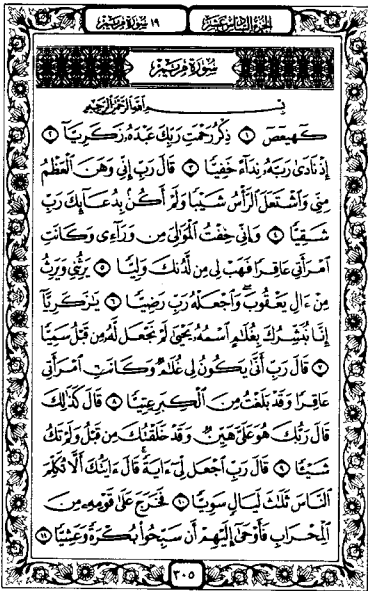 الجُزْءُ السَّادِسَ عَشَرَ ١٩ سُورَةُ مَرْيَمَ
سُورَةُ مَرْيَمَ
بِسْمِ ٱللَّهِ ٱلرَّحْمَٰنِ ٱلرَّحِيمِ
كٓهيعٓصٓ ١ ذِكْرُ رَحْمَتِ رَبِّكَ عَبْدَهُۥ زَكَرِيَّآ ٢
إِذْ نَادَىٰ رَبَّهُۥ نِدَآءً خَفِيًّا ٣ قَالَ رَبِّ إِنِّى وَهَنَ ٱلْعَظْمُ
مِنِّى وَٱشْتَعَلَ ٱلرَّأْسُ شَيْبًا وَلَمْ أَكُنۢ بِدُعَآئِكَ رَبِّ
شَقِيًّا ٤ وَإِنِّى خِفْتُ ٱلْمَوَٰلِىَ مِن وَرَآءِى وَكَانَتِ
ٱمْرَأَتِى عَاقِرًا فَهَبْ لِى مِن لَّدُنكَ وَلِيًّا ٥ يَرِثُنِى وَيَرِثُ
مِنْ ءَالِ يَعْقُوبَ ۖ وَٱجْعَلْهُ رَبِّ رَضِيًّا ٦ يَٰزَكَرِيَّآ
إِنَّا نُبَشِّرُكَ بِغُلَٰمٍ ٱسْمُهُۥ يَحْيَىٰ لَمْ نَجْعَل لَّهُۥ مِن قَبْلُ سَمِيًّا
٧ قَالَ رَبِّ أَنَّىٰ يَكُونُ لِى غُلَٰمٌ وَكَانَتِ ٱمْرَأَتِى
عَاقِرًا وَقَدْ بَلَغْتُ مِنَ ٱلْكِبَرِ عِتِيًّا ٨ قَالَ كَذَٰلِكَ
قَالَ رَبُّكَ هُوَ عَلَىَّ هَيِّنٌ وَقَدْ خَلَقْتُكَ مِن قَبْلُ وَلَمْ تَكُ
شَيْـًٔا ٩ قَالَ رَبِّ ٱجْعَل لِّىٓ ءَايَةً ۚ قَالَ ءَايَتُكَ أَلَّا تُكَلِّمَ
ٱلنَّاسَ ثَلَٰثَ لَيَالٍ سَوِيًّا ١٠ فَخَرَجَ عَلَىٰ قَوْمِهِۦ مِنَ
ٱلْمِحْرَابِ فَأَوْحَىٰٓ إِلَيْهِمْ أَن سَبِّحُوا۟ بُكْرَةً وَعَشِيًّا ١١
٣٠٥